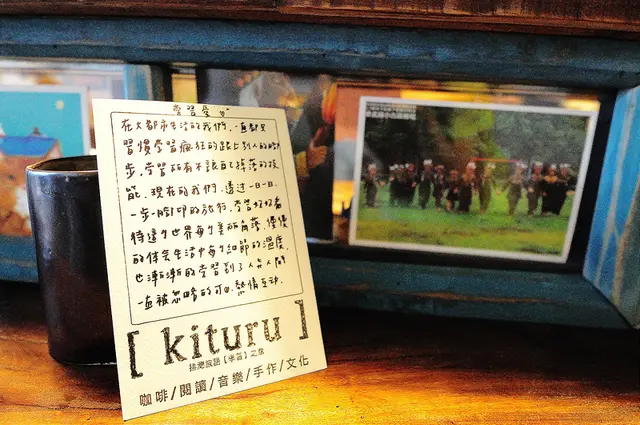 學習愛
在大都市生活的我們,一直都是
習慣學習瘋狂的跟上別人的腳
步,學習所有不讓自己掉落的技
能.現在的我們,透過一日一日.
一步一腳印的旅行,學習好好看
待這個世界每個美麗角落,慢慢
的体会生活中每個細節的溫度.
也漸漸的學習到了人與人間
一直被忽略的可以熱情互動.
[ kituru ]
排灣族語【學習】之意
咖啡/閱讀/音樂/手作/文化